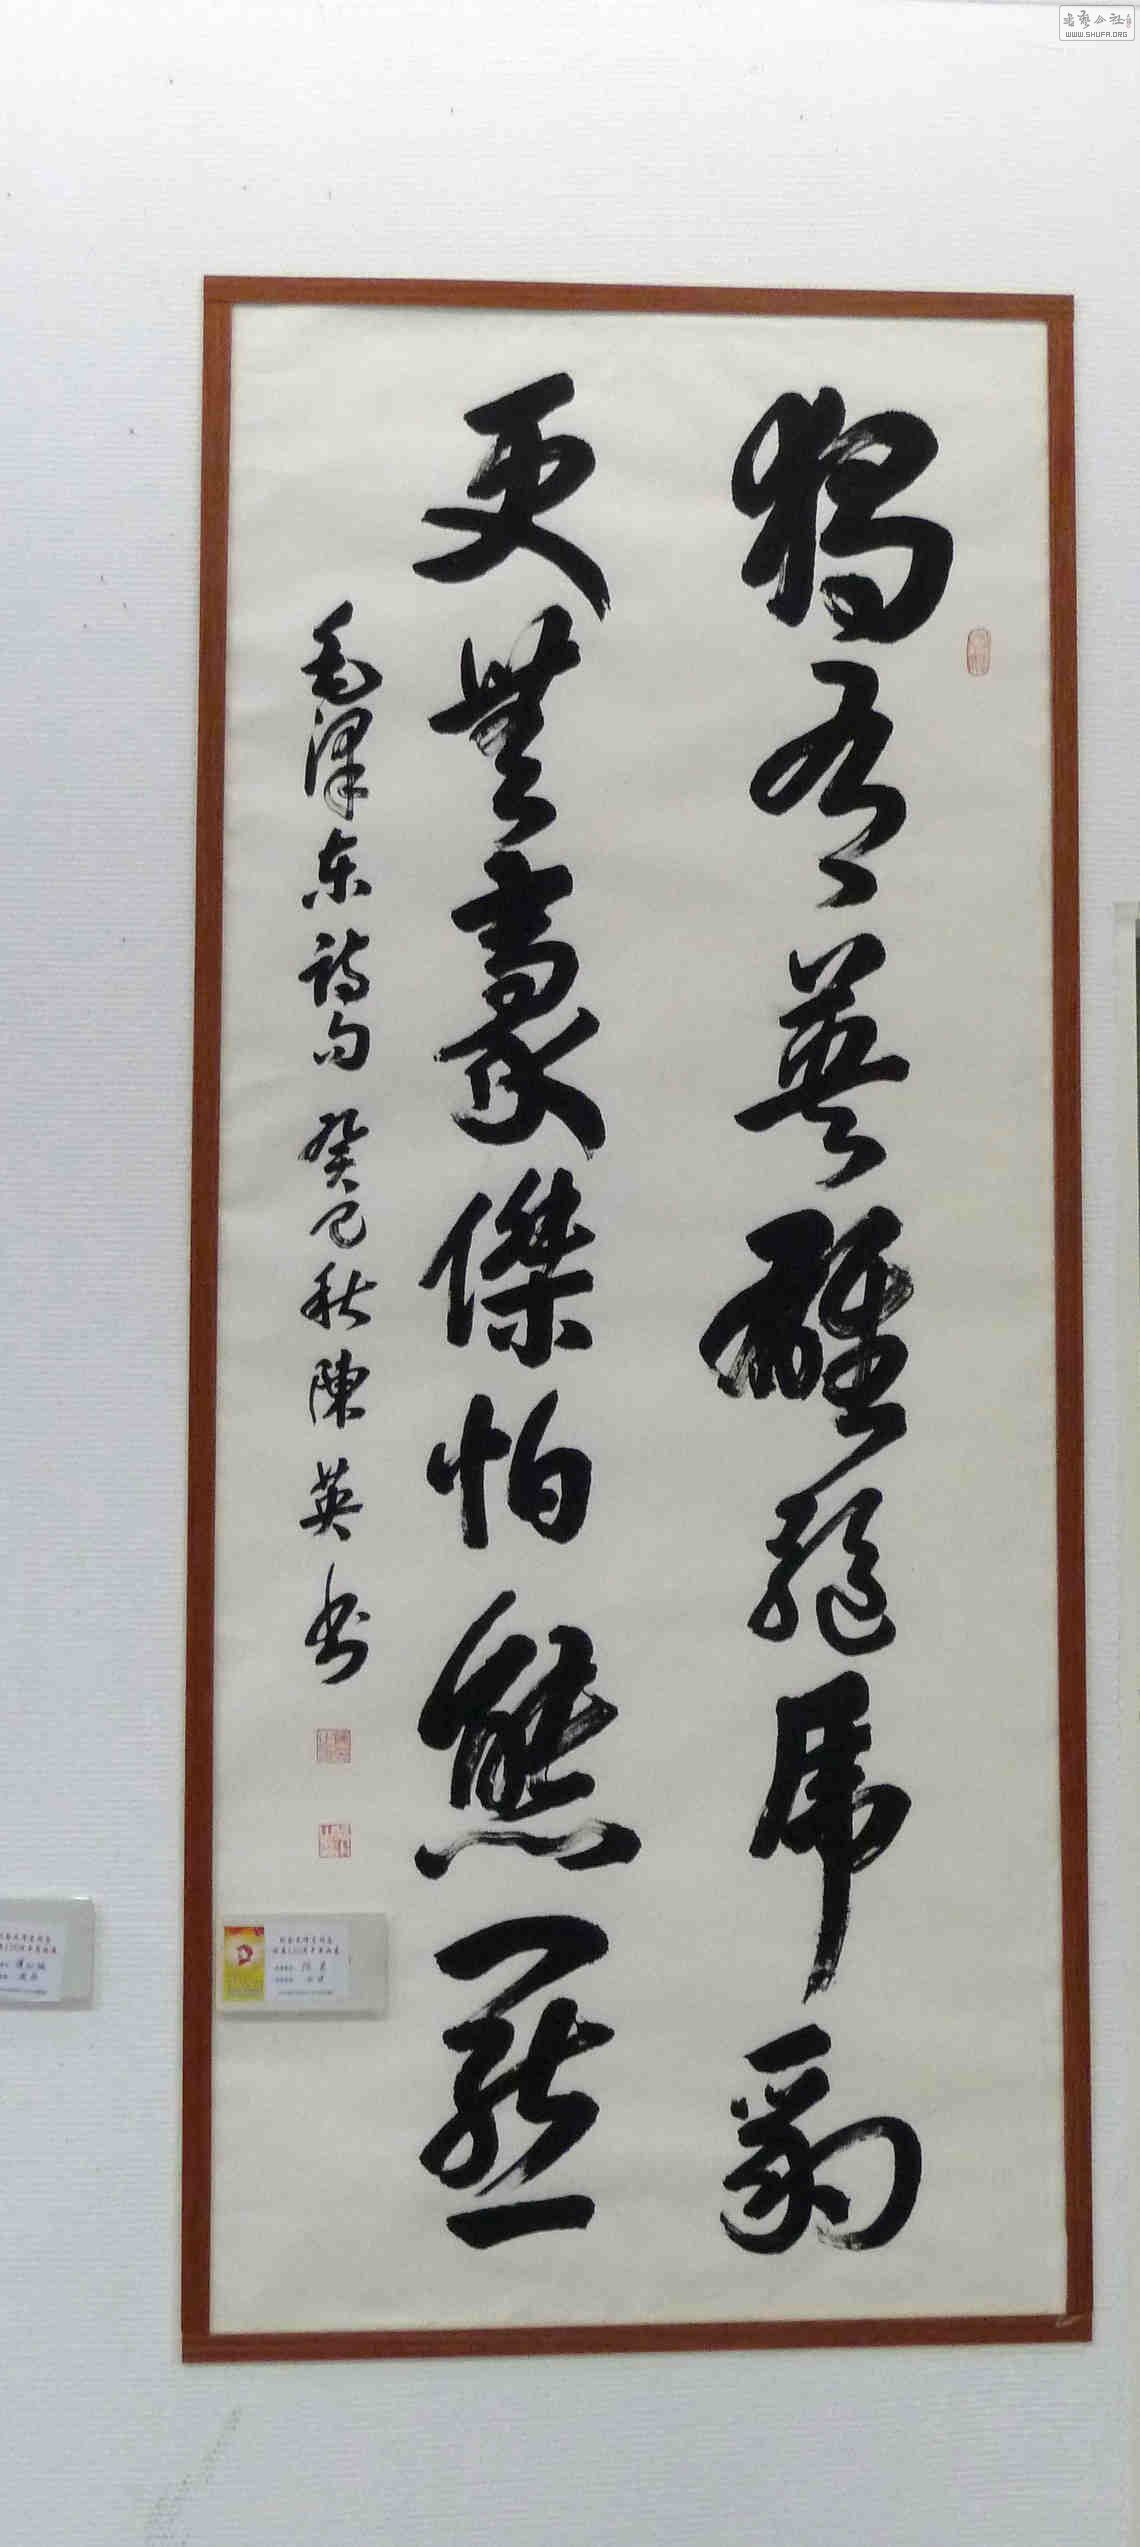 獨有英雄驅虎豹
更無豪傑怕熊羆
毛澤东詩句 癸巳秋 陳英书
書藝公社
WWW.SHUFA.ORG